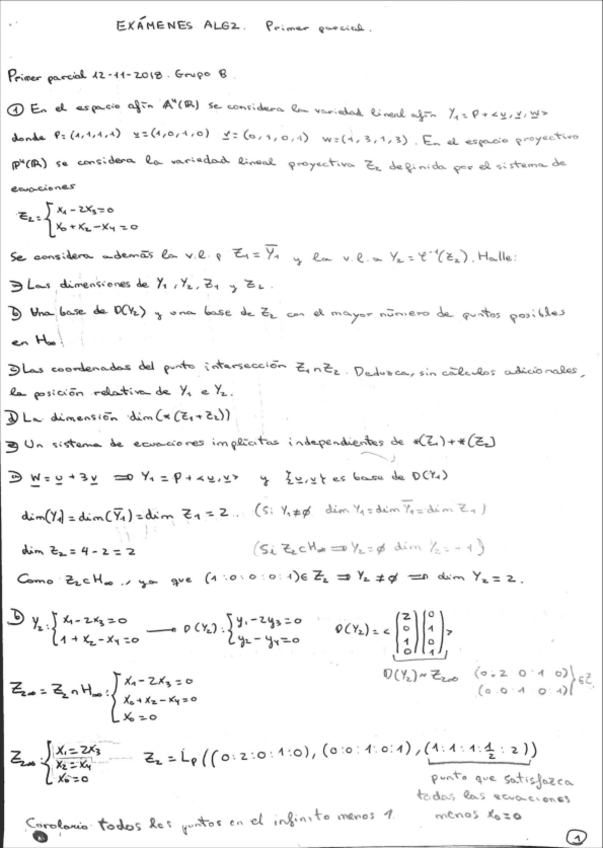 EXÁMENES ALG2. Primer parcial.
Primer parcial 12-11-2018. Grupo B.
① En el espacio afín A⁴(ℝ) se considera la variedad lineal afín Y₁ = P + <u, v, w>
donde P=(1,1,1,1) u=(1,0,1,0) v=(0,1,0,1) w=(1,3,1,3). En el espacio proyectivo
P⁴(ℝ) se considera la variedad lineal proyectiva Z₂ definida por el sistema de
ecuaciones
Z₂ = { x₁ - 2x₃ = 0
x₀ + x₂ - x₄ = 0
Se considera además la v.l.p Z₁ = Y̅₁ y la v.l.a Y₂ = τ⁻¹(Z₂). Halle:
a) Las dimensiones de Y₁, Y₂, Z₁ y Z₂.
b) Una base de D(Y₂) y una base de Z₂ con el mayor número de puntos posibles
en H∞.
c) Las coordenadas del punto intersección Z₁∩Z₂. Deduzca, sin cálculos adicionales,
la posición relativa de Y₁ e Y₂.
d) La dimensión dim(*(Z₁+Z₂))
e) Un sistema de ecuaciones implícitas independientes de *(Z₁)+*(Z₂)
a) w = u + 3v ⟹ Y₁ = P + <u, v> y {u, v} es base de D(Y₁)
dim(Y₁) = dim(Y̅₁) = dim Z₁ = 2 (Si Y₁≠∅ dim Y₁ = dim Y̅₁ = dim Z₁)
dim Z₂ = 4 - 2 = 2 (Si Z₂⊂H∞ ⟹ Y₂=∅ dim Y₂ = -1)
Como Z₂⊂H∞, ya que (1:0:0:0:1)∈Z₂ ⟹ Y₂≠∅ ⟹ dim Y₂ = 2.
b) Y₂: { x₁ - 2x₃ = 0 ⟶ D(Y₂): { y₁ - 2y₃ = 0 D(Y₂) = < (2 0 1 0) (0 1 0 1) >
1 + x₂ - x₄ = 0 y₂ - y₄ = 0
D(Y₂) ~ Z₂∞ (0:2 0 1 0) (0:0 1 0 1) } ∈Z
Z₂∞ = Z₂∩H∞: { x₁ - 2x₃ = 0
x₀ + x₂ - x₄ = 0
x₀ = 0
Z₂∞: { x₁ = 2x₃ Z₂ = Lp((0:2:0:1:0), (0:0:1:0:1), (1:1:1:½:2))
x₂ = x₄
x₀ = 0
punto que satisfazca
todas las ecuaciones
menos x₀=0
Corolario: todos los puntos en el infinito menos 1.
①